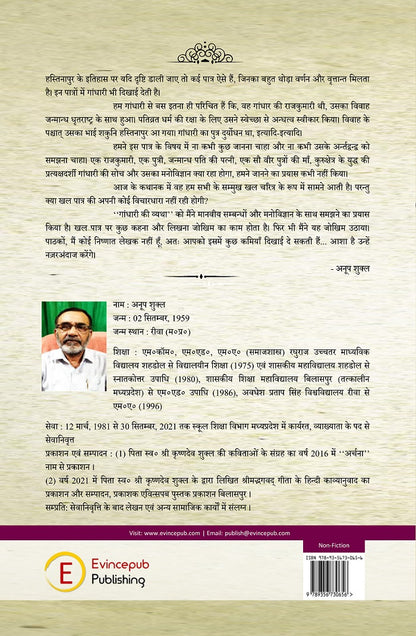 हस्तिनापुर के इतिहास पर यदि दृष्टि डाली जाए तो कई पात्र ऐसे हैं, जिनका बहुत थोड़ा वर्णन और वृत्तान्त मिलता
है। इन पात्रों में गांधारी भी दिखाई देती है।
हम गांधारी से बस इतना ही परिचित हैं कि, वह गांधार की राजकुमारी थी, उसका विवाह
जन्मान्ध धृतराष्ट्र के साथ हुआ। पतिव्रत धर्म की रक्षा के लिए उसने स्वेच्छा से अन्धत्व स्वीकार किया। विवाह के
पश्चात् उसका भाई शकुनि हस्तिनापुर आ गया। गांधारी का पुत्र दुर्योधन था, इत्यादि-इत्यादि।
हमने इस पात्र के विषय में ना कभी कुछ जानना चाहा और ना कभी उसके अर्न्तद्वन्द्व को
समझना चाहा। एक राजकुमारी, एक पुत्री, जन्मान्ध पति की पत्नी, एक सौ वीर पुत्रों की माँ, कुरुक्षेत्र के युद्ध की
प्रत्यक्षदर्शी गांधारी की सोच और उसका मनोविज्ञान क्या रहा होगा, हमने जानने का प्रयास कभी नहीं किया।
आज के कथानक में वह हम सभी के सम्मुख खल चरित्र के रूप में सामने आती है। परन्तु
क्या खल पात्र की अपनी कोई विचारधारा नहीं रही होगी?
''गांधारी की व्यथा'' को मैंने मानवीय सम्बन्धों और मनोविज्ञान के साथ समझने का प्रयास
किया है। खल पात्र पर कुछ कहना और लिखना जोखिम का काम होता है। फिर भी मैंने यह जोखिम उठाया।
पाठकों, मैं कोई निष्णात लेखक नहीं हूँ, अतः आपको इसमें कुछ कमियाँ दिखाई दे सकती हैं... आशा है उन्हें
नज़रअंदाज करेंगे।
- अनूप शुक्ल
नाम : अनूप शुक्ल
जन्म : 02 सितम्बर, 1959
जन्म स्थान : रीवा (म०प्र०)
शिक्षा : एम०कॉम०, एम०एड०, एम०ए० (समाजशास्त्र) रघुराज उच्चतर माध्यविक
विद्यालय शहडोल से विद्यालयीन शिक्षा (1975) एवं शासकीय महाविद्यालय शहडोल से
स्नातकोत्तर उपाधि (1980), शासकीय शिक्षा महाविद्यालय बिलासपुर (तत्कालीन
मध्यप्रदेश) से एम०एड० उपाधि (1986), अवधेश प्रताप सिंह विश्वविद्यालय रीवा से
एम०ए० (1996)
सेवा : 12 मार्च, 1981 से 30 सितम्बर, 2021 तक स्कूल शिक्षा विभाग मध्यप्रदेश में कार्यरत, व्याख्याता के पद से
सेवानिवृत्त
प्रकाशन एवं सम्पादन : (1) पिता स्व० श्री कृष्णदेव शुक्ल की कविताओं के संग्रह का वर्ष 2016 में ''अर्चना''
नाम से प्रकाशन ।
(2) वर्ष 2021 में पिता स्व० श्री कृष्णदेव शुक्ल के द्वारा लिखित श्रीमद्भगवद् गीता के हिन्दी काव्यानुवाद का
प्रकाशन और सम्पादन, प्रकाशक एविन्सपब पुस्तक प्रकाशन बिलासपुर ।
सम्प्रति: सेवानिवृत्ति के बाद लेखन एवं अन्य सामाजिक कार्यों में संलग्न ।
Visit: www.evincepub.com | Email: publish@evincepub.com
Non-Fiction
ISBN 978-93-5673-065-6
E
Evincepub
Publishing
9 789356 730656 >